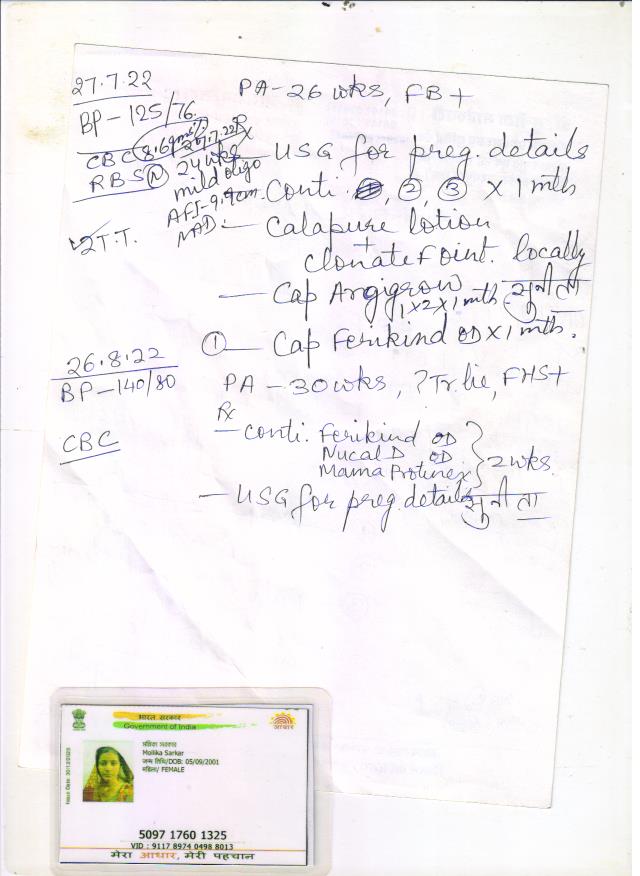 27.7.22
PA-26 wks, FB+
BP-125/76.
CBC 8.6 gms% 27.7.22 Rx
RBS (N) 24 wks
mild oligo
AFI-9.9cm.
NAD:
2 T.T.
- USG for preg. details
Conti ①, ②, ③ x 1 mth
- Calapure lotion
+
clonate F oint. locally
- Cap Argigrow
1x2x1 mth. सुनीता
① - Cap Ferikind OD x 1 mth.
26.8.22
BP-140/80
PA - 30 wks, ?Tr. lie, FHS+
CBC
Rx
- conti. Ferikind OD
Nucal D OD
Mama Protinex } 2 wks.
- USG for preg. details सुनीता
भारत सरकार
Government of India
आधार
Issue Date: 30/12/2015
Mollika Sarkar
जन्म तिथि/DOB: 05/09/2001
महिला/ FEMALE
5097 1760 1325
VID : 9117 8974 0498 8013
मेरा आधार, मेरी पहचान